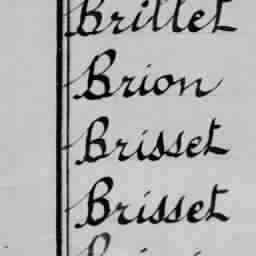 Brillet
Brion
Brisset
Brisset